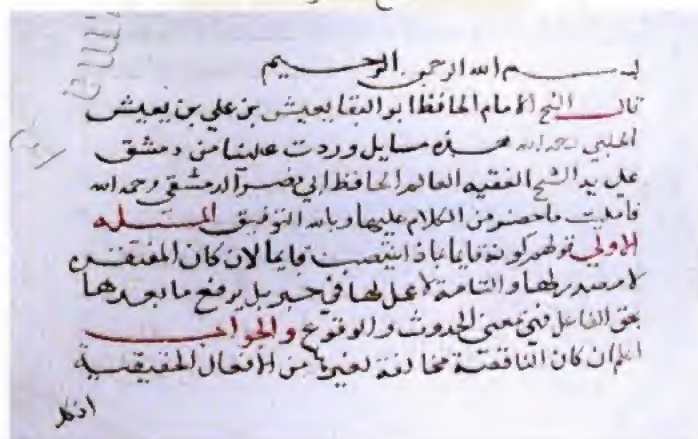 بسم الله الرحمن الرحيم
قال الشيخ الامام الحافظ ابو البقا يعيش بن علي بن يعيش
الحلبي رحمه الله هذه مسايل وردت علينا من دمشق
على يد الشيخ الفقيه العالم الحافظ ابي نصر الدمشقي رحمه الله
فامليت ما حضر من الكلام عليها وبالله التوفيق المسئله
الاولي قولهم كونه قايما بماذا انتصب قايما لان كان المفتقره
لا مصدر لها والتامة لا عمل لها في خبر بل يرفع ما بعدها
بحق الفاعل فهي بمعنى الحدوث والوقوع والجواب
اعلم ان كان الناقصة مخالفة لغيرها من الافعال الحقيقية